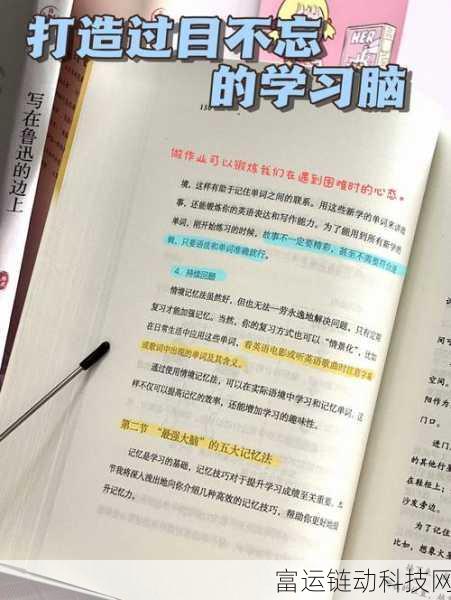 打造过目不忘
的学习脑
写在鲁迅的边上
HER
做作业可以锻炼我们在遇到困难时的心态。
境，这样有助于记住单词之间的联系。用这些新学的单词来讲故
事，还能锻炼你的英语表达和写作能力。为了能用到所有新学的
单词，刚开始练习的时候，故事不一定要精彩，甚至不需要符合逻
辑，只要语法和单词准确就行。
4. 持续回顾
情境记忆法虽然好，但也无法一劳永逸地解决问题，只有定期
复习才能加强记忆。当然，你的复习方式也可以“情景化”，比如
在日常生活中应用这些单词，看英语电影或听英语歌曲时留意字幕
或歌词中出现的单词及其含义。
通过使用情境记忆法，可以在实际语境中学习和记忆单词，这
样不仅可以提高记忆的效率，还能增加学习的趣味性。
第二节 “最强大脑”的五大记忆法
记忆是学习的基础，记忆技巧对于提升学习成绩至关重要。本
节我将深入浅出地向你介绍几种高效的记忆技巧，帮助你更好地提
升记忆力。
间
空间。
阳作为
门口。
进门
的其他行
在鞋柜上；
沙发旁边。
为了记住
比如，想象大
富运链动科技网